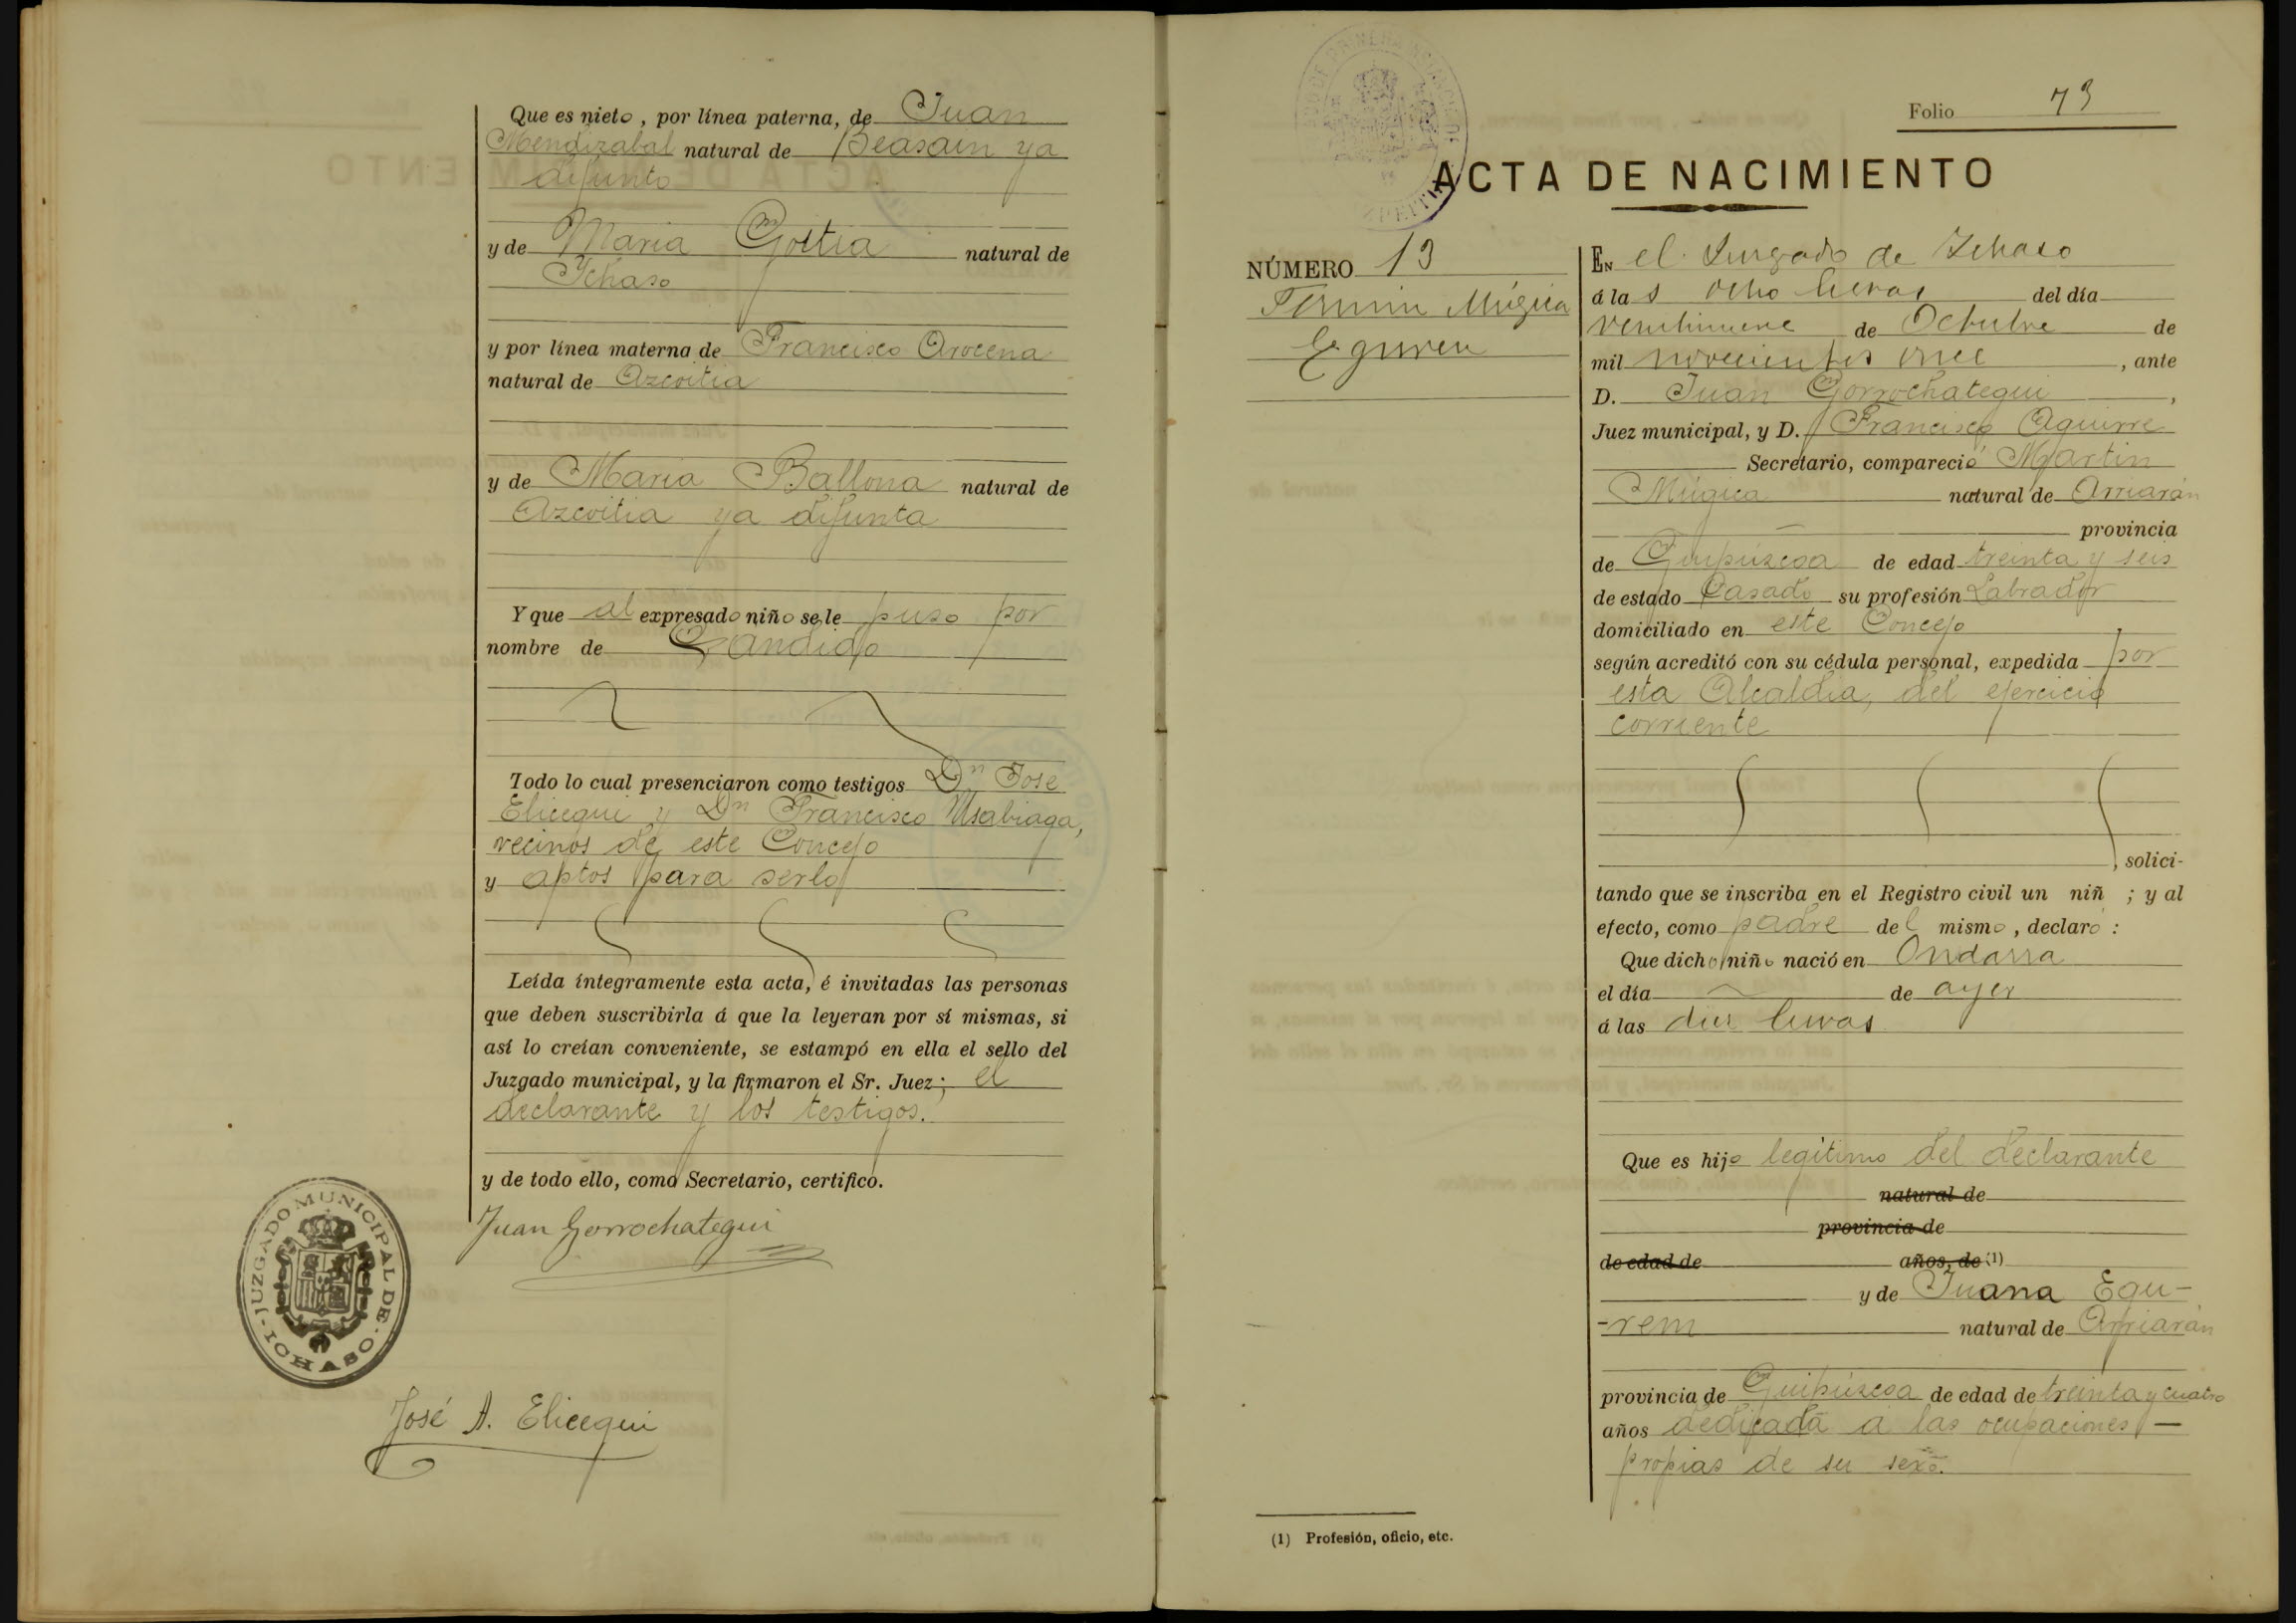 Que es nieto, por línea paterna, de Juan
Mendizabal natural de Beasain ya
difunto
y de Maria Goitia natural de
Ichaso
y por línea materna de Francisco Arocena
natural de Azcoitia
y de Maria Ballona natural de
Azcoitia ya difunta
Y que al expresado niño se le puso por
nombre de Candido
Todo lo cual presenciaron como testigos Dn José
Elicegui y Dn Francisco Usabiaga,
vecinos de este Concejo
y aptos para serlo
Leída íntegramente esta acta, é invitadas las personas
que deben suscribirla á que la leyeran por sí mismas, si
así lo creían conveniente, se estampó en ella el sello del
Juzgado municipal, y la firmaron el Sr. Juez; el
declarante y los testigos.
y de todo ello, como Secretario, certifico.
Juan Gorrochategui
JUZGADO MUNICIPAL DE ICHASO
José A. Elicegui
Folio 73
ACTA DE NACIMIENTO
NÚMERO 13
Fermin Múgica
Eguren
EN el Juzgado de Ichaso
á las ocho horas del día
veintinueve de Octubre de
mil novecientos once, ante
D. Juan Gorrochategui,
Juez municipal, y D. Francisco Aguirre
Secretario, compareció Martin
Múgica natural de Arriarán
provincia
de Guipúzcoa de edad treinta y seis
de estado Casado su profesión Labrador
domiciliado en este Concejo
según acreditó con su cédula personal, expedida por
esta Alcaldia, del ejercicio
corriente
, solici-
tando que se inscriba en el Registro civil un niñ ; y al
efecto, como padre del mismo, declaró:
Que dicho niño nació en Ondarra
el día de ayer
á las diez horas
Que es hijo legítimo del declarante
natural de
provincia de
de edad de años, de (1)
y de Juana Egu-
-rem natural de Arriarán
provincia de Guipúzcoa de edad de treinta y cuatro
años dedicada a las ocupaciones
propias de su sexo.
(1) Profesión, oficio, etc.